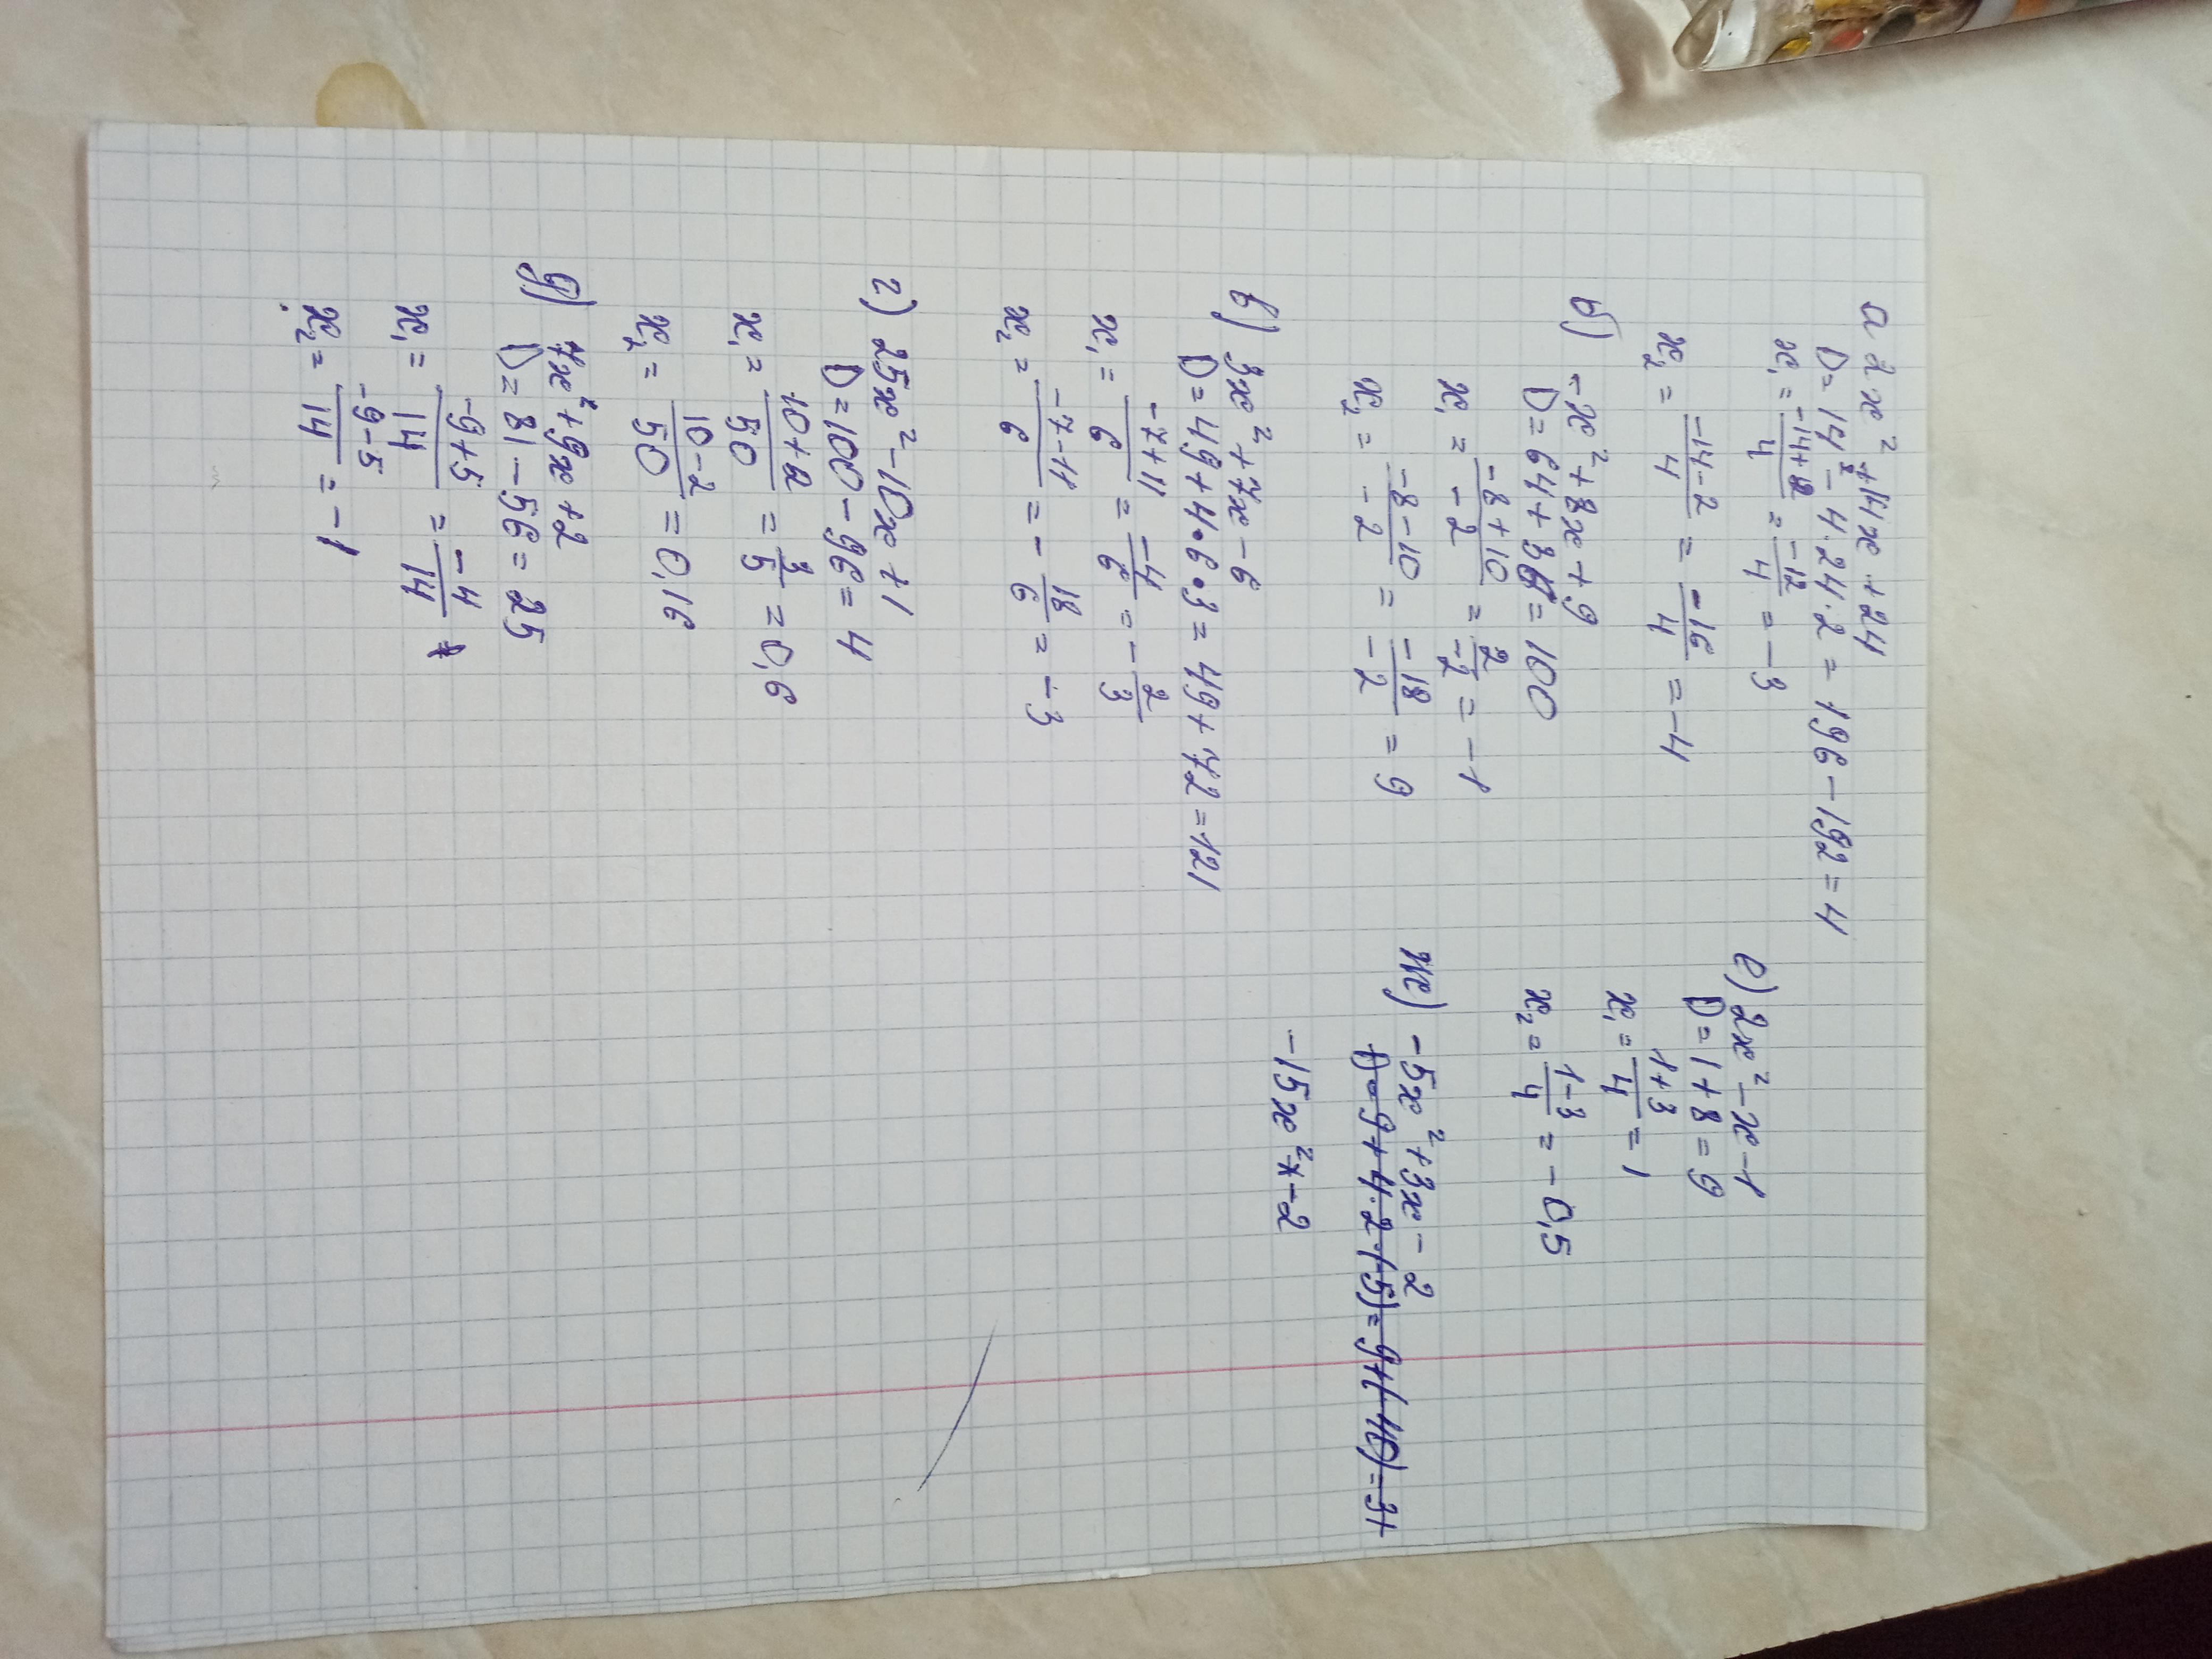 а 2x² + 14x + 24
D = 14² - 4·24·2 = 196 - 192 = 4
x₁ = (-14+2)/4 = -12/4 = -3
x₂ = (-14-2)/4 = -16/4 = -4
б) -x² + 8x + 9
D = 64 + 36 = 100
x₁ = (-8+10)/-2 = 2/-2 = -1
x₂ = (-8-10)/-2 = -18/-2 = 9
в) 3x² + 7x - 6
D = 49 + 4·6·3 = 49 + 72 = 121
x₁ = (-7+11)/6 = -4/6 = -2/3
x₂ = (-7-11)/6 = -18/6 = -3
г) 25x² - 10x + 1
D = 100 - 96 = 4
x₁ = (10+2)/50 = 3/5 = 0,6
x₂ = (10-2)/50 = 0,16
д) 7x² + 9x + 2
D = 81 - 56 = 25
x₁ = (-9+5)/14 = -4/14
x₂ = (-9-5)/14 = -1
е) 2x² - x - 1
D = 1 + 8 = 9
x₁ = (1+3)/4 = 1
x₂ = (1-3)/4 = -0,5
ж) -5x² + 3x - 2
D = 9 + 4·2·(-5) = 9 + (-40) = 31
-15x² - 2